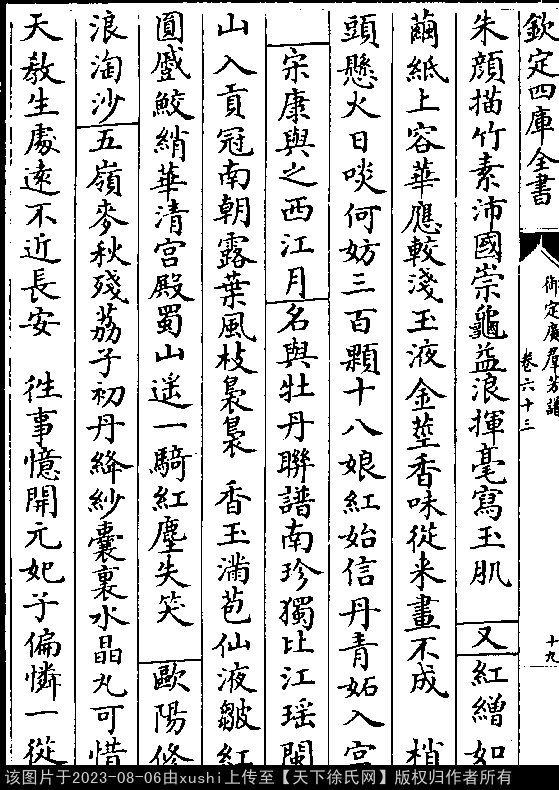 欽定四庫全書
御定廣羣芳譜
卷六十三
十九
朱顔描竹素沛國崇龜益浪揮毫寫玉肌 又紅繒如
繭紙上容華應較淺玉液金莖香味從来畫不成 梢
頭懸火日啖何妨三百顆十八娘紅始信丹青妬入宫
宋康與之西江月名與牡丹聯譜南珍獨比江瑶閩
山入貢冠南朝露葉風枝裊裊 香玉滿苞仙液皺紅
圓蹙鮫綃華清宫殿蜀山遥一騎紅塵失笑 歐陽修
浪淘沙五嶺麥秋殘荔子初丹絳紗囊裏水晶丸可惜
天教生處遠不近長安 徃事憶開元妃子偏憐一從
该图片于2023-08-06由xushi上传至【天下徐氏网】版权归作者所有